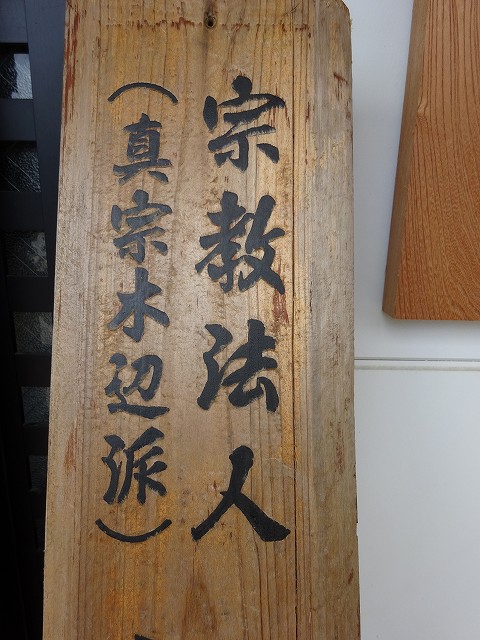 宗教法人
（真宗木辺派）